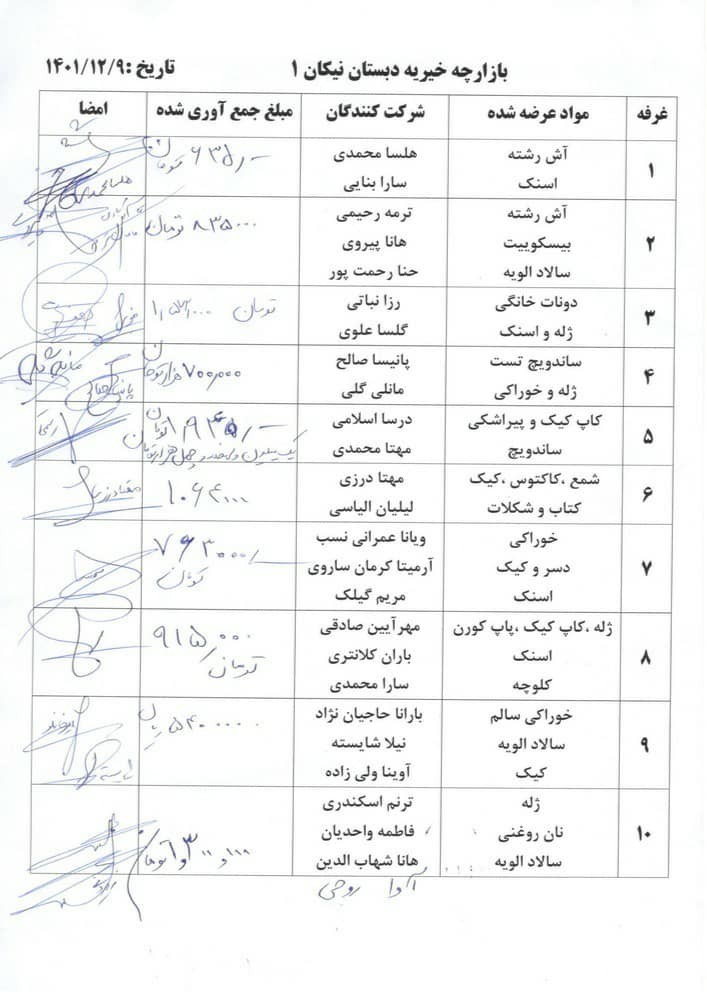 بازارچه خیریه دبستان نیکان ۱ تاریخ :۱۴۰۱/۱۲/۹
غرفه مواد عرضه شده شرکت کنندگان مبلغ جمع آوری شده امضا
۱
آش رشته
اسنک
هلسا محمدی
سارا بنایی
۶۳۵۰/-
تومان
هلسا محمدی
۲
آش رشته
بیسکوییت
سالاد الویه
ترمه رحیمی
هانا پیروی
حنا رحمت پور
۸۳۵۰۰۰ تومان
۳
دونات خانگی
ژله و اسنک
رزا نباتی
گلسا علوی
تومان
۴
ساندویچ تست
ژله و خوراکی
پانیسا صالح
مانلی گلی
۷۰۰,۰۰۰ هزار تومان
۵
کاپ کیک و پیراشکی
ساندویچ
درسا اسلامی
مهتا محمدی
تومان
۶
شمع ،کاکتوس ،کیک
کتاب و شکلات
مهتا درزی
لیلیان الیاسی
۷
خوراکی
دسر و کیک
اسنک
ویانا عمرانی نسب
آرمیتا کرمان ساروی
مریم گیلک
۷۶۳۰۰۰/-
تومان
۸
ژله ،کاپ کیک ،پاپ کورن
اسنک
کلوچه
مهرآیین صادقی
باران کلانتری
سارا محمدی
۹۱۵,۰۰۰
تومان
۹
خوراکی سالم
سالاد الویه
کیک
بارانا حاجیان نژاد
نیلا شایسته
آوینا ولی زاده
۵۴۰۰۰۰۰ ریال
۱۰
ژله
نان روغنی
سالاد الویه
ترنم اسکندری
فاطمه واحدیان
هانا شهاب الدین
آوا روحی